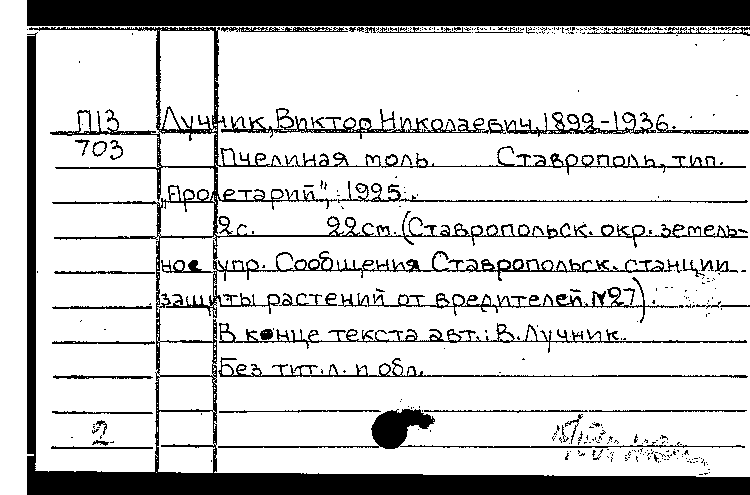 П13 Лучник, Виктор Николаевич, 1892-1936.
703 Пчелиная моль. Ставрополь, тип.
„Пролетарий", 1925.
2с. 22см. (Ставропольск. окр. земель-
ное упр. Сообщения Ставропольск. станции
защиты растений от вредителей. №27).
В конце текста авт.: В. Лучник.
Без тит. л. и обл.
2